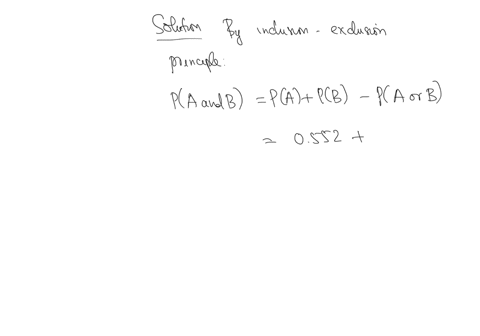 Solution By inclusion - exclusion
principle:
P(A and B) = P(A) + P(B) - P(A or B)
= 0.552 +